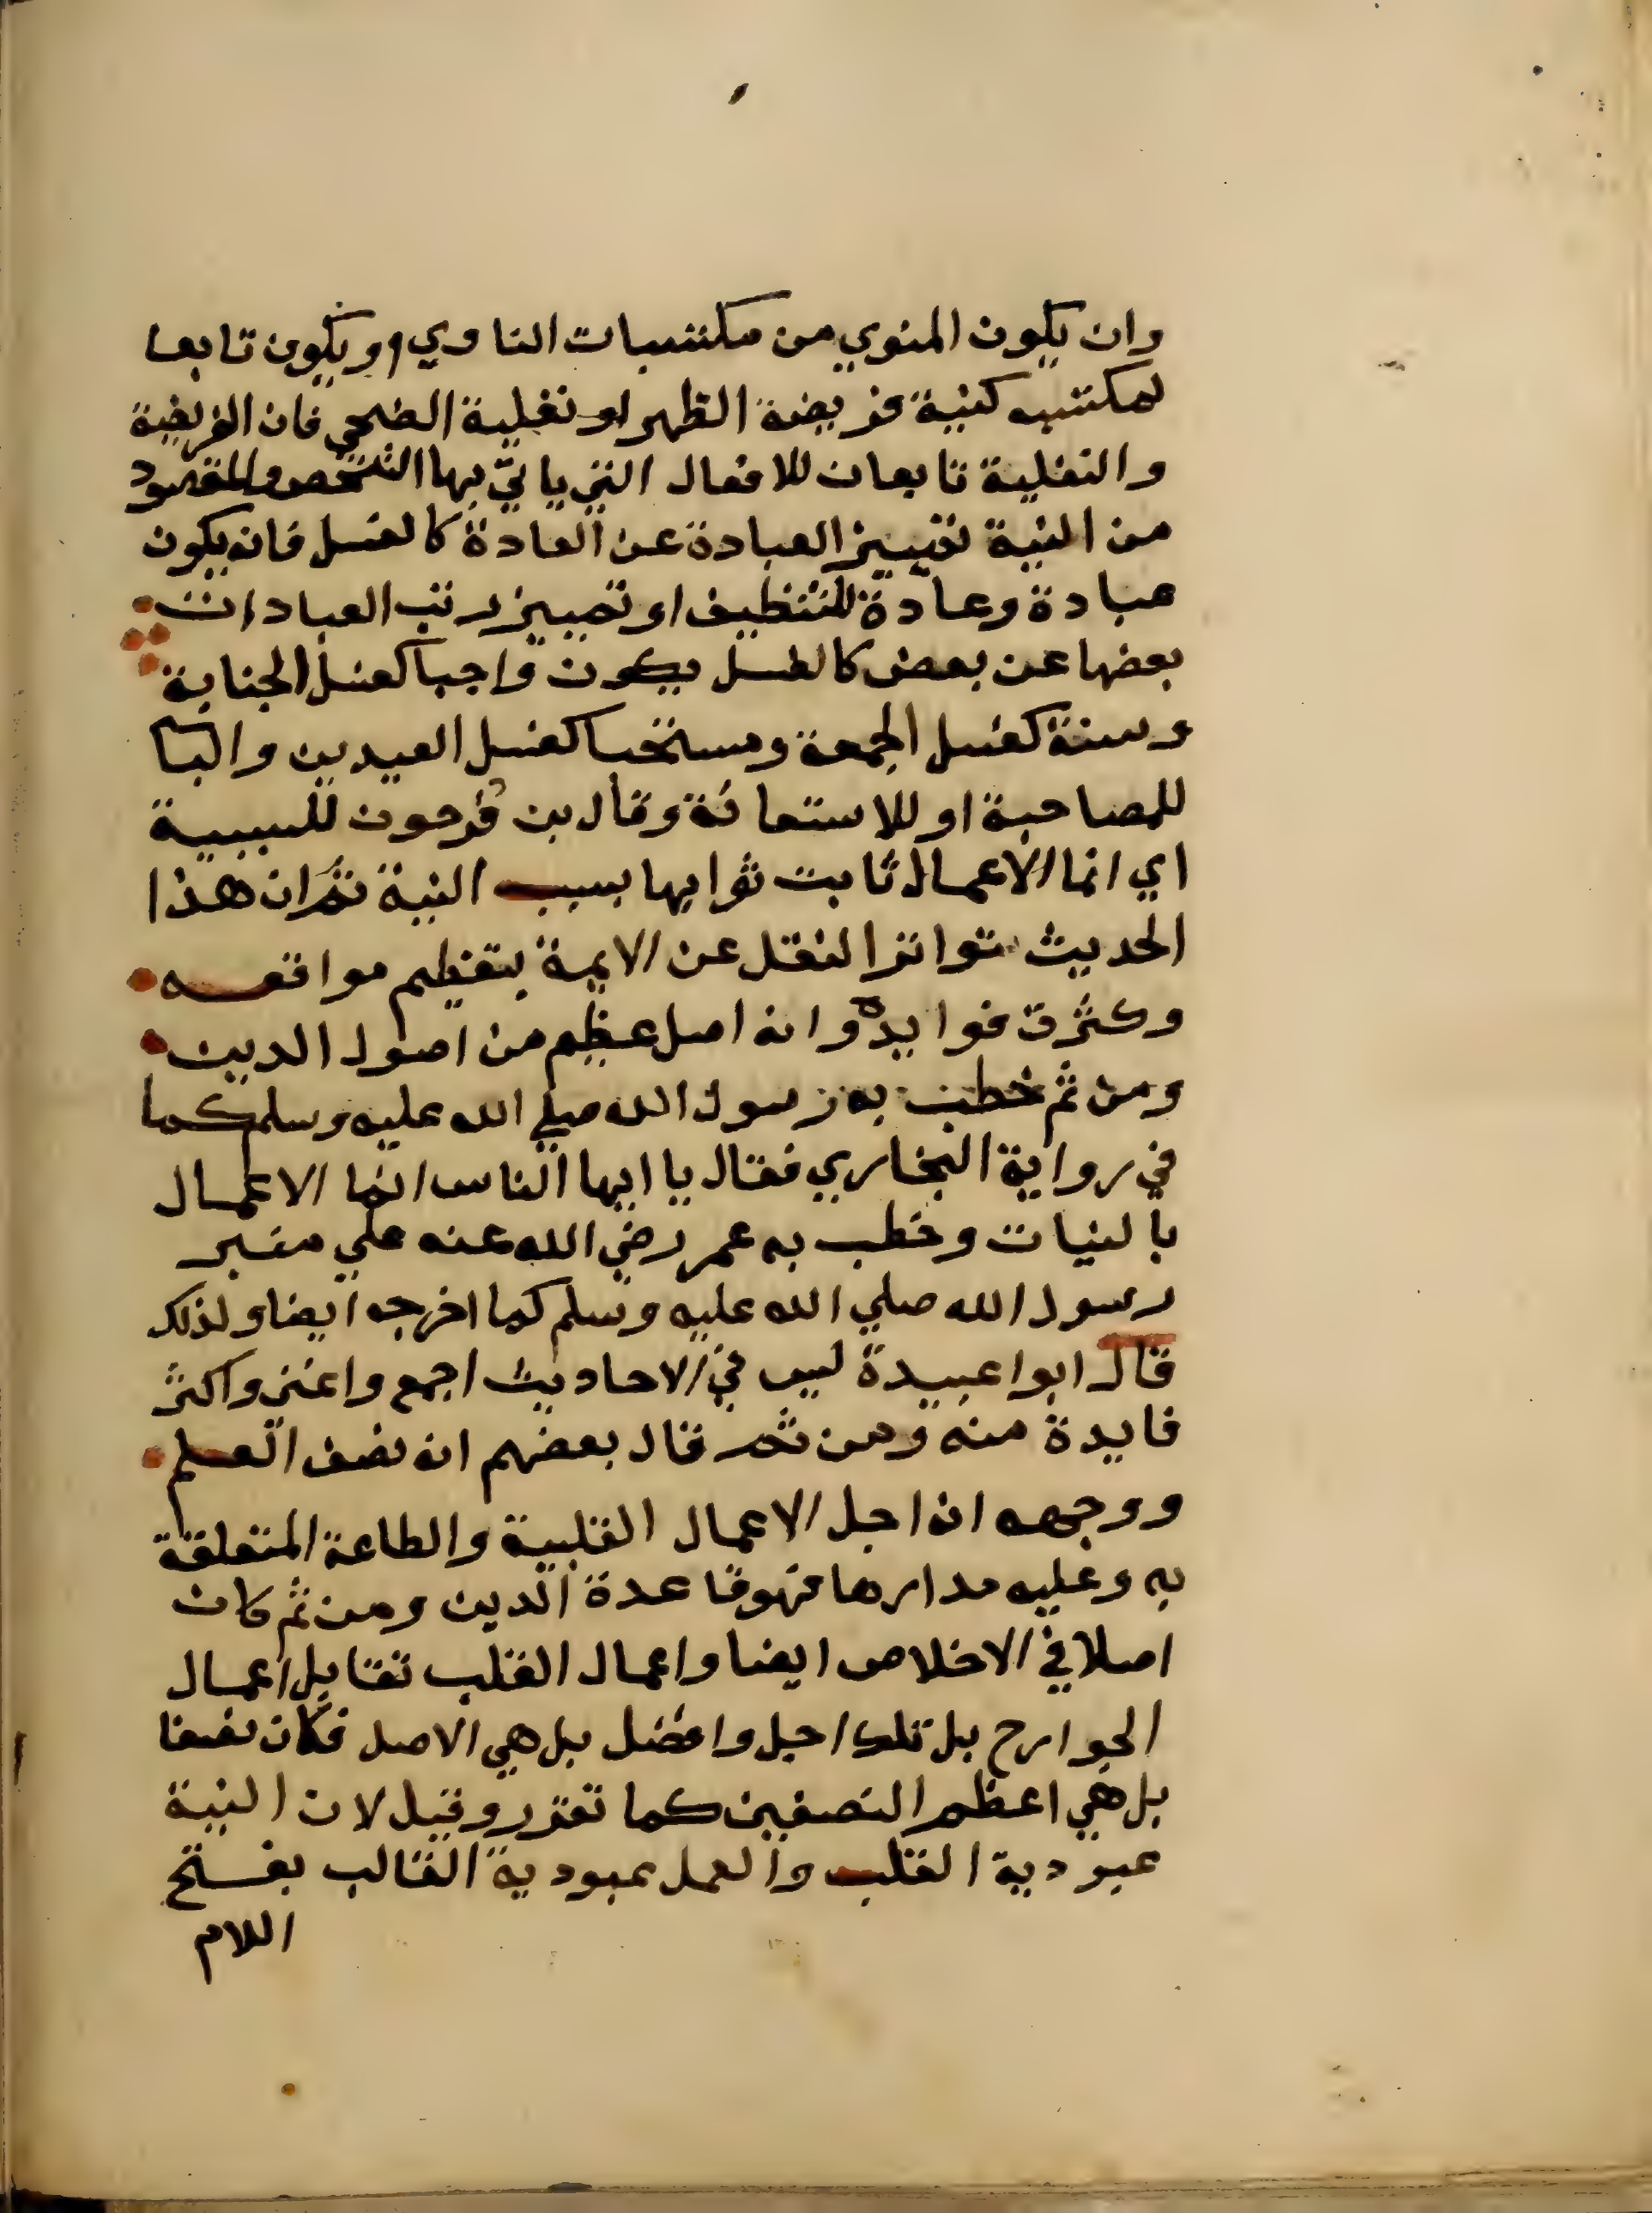 وان يكون المنوي من مكتسبات الناوي او يكون تابعا
لمكتسبه كنية فريضة الظهر او نفلية الضحي فان الفريضية
والنفلية تابعان للافعال التي ياتي بها الشخص والمقصود
من النية تمييز العبادة عن العادة كالغسل فانه يكون
عبادة وعادة للتنظيف او تمييز رتب العبادات
بعضها عن بعض كالغسل يكون واجبا كغسل الجنابة
وسنة كغسل الجمعة ومستحبا كغسل العيدين والبا
للمصاحبة او للاستعانة وقال بن فرحون للسببية
اي انما الاعمال ثابت ثوابها بسبب النية ثم ان هذا
الحديث تواتر النقل عن الايمة بتعظيم مواقعه
وكثرت فوايده وانه اصل عظيم من اصول الدين
ومن ثم خطب به رسول الله صلي الله عليه وسلم كما
في رواية البخاري فقال يا ايها الناس انما الاعمال
بالنيات وخطب به عمر رضي الله عنه علي منبر
رسول الله صلي الله عليه وسلم كما اخرجه ايضا ولذلك
قال ابوا عبيدة ليس في الاحاديث اجمع واغني واكثر
فايدة منه ومن ثم قال بعضهم انه نصف العلم
ووجهه انه اجل الاعمال القلبية والطاعة المتعلقة
به وعليه مدارها فهو قاعدة الدين ومن ثم كان
اصلا في الاخلاص ايضا واعمال القلب تقابل اعمال
الجوارح بل تلك اجل وافضل بل هي الاصل فكان نصفا
بل هي اعظم النصفين كما تقرر وقيل لان النية
عبودية القلب والعمل عبودية القالب بفتح
اللام